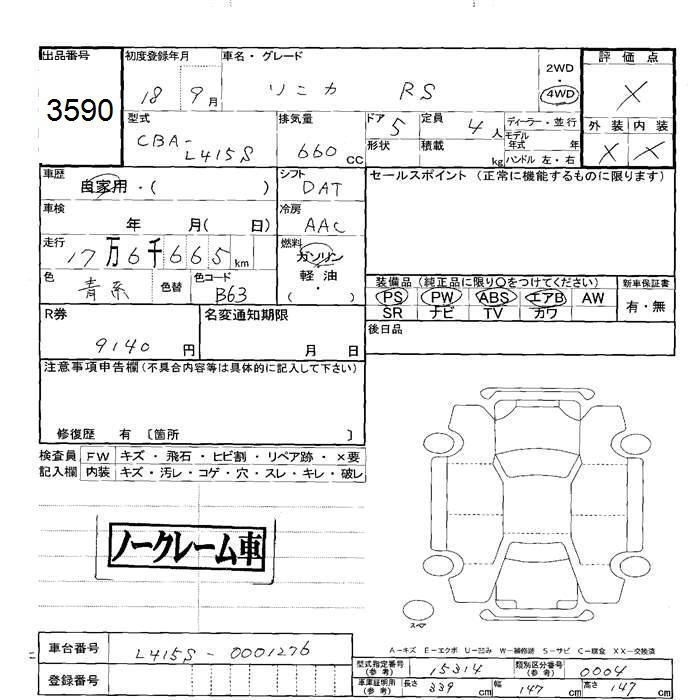 出品番号
3590
初度登録年月
18 9月
車名・グレード
ソニカ RS
2WD
・
4WD
評価点
×
外装 内装
× ×
型式
CBA-
L415S
排気量
660 CC
ドア 5
形状
定員 4 人
積載 kg
ディーラー・並行
モデル
年式 年
ハンドル 左・右
車歴
自家用・( )
シフト
DAT
セールスポイント (正常に機能するものに限ります)
車検
年 月( 日)
冷房
AAC
走行
17万6千665km
燃料
ガソリン
軽油
( ・ )
色
青系
色替
色コード
B63
装備品 (純正品に限り○をつけてください)
PS PW ABS エアB AW
SR ナビ TV カワ
新車保証書
有・無
R券
9140 円
名変通知期限
月 日
後日品
注意事項申告欄 (不具合内容等は具体的に記入して下さい)
修復歴 有 〔箇所 〕
検査員 FW キズ・飛石・ヒビ割・リペア跡・×要
記入欄 内装 キズ・汚レ・コゲ・穴・スレ・キレ・破レ
ノークレーム車
スペア
A-キズ E-エクボ U-凹ミ W-補修跡 S-サビ C-腐食 XX-交換済
車台番号
L415S-0001276
登録番号
型式指定番号
(参考)
15314
類別区分番号
(参考)
0004
車庫証明用
(参考)
長さ 339 cm 幅 147 cm 高さ 147 cm